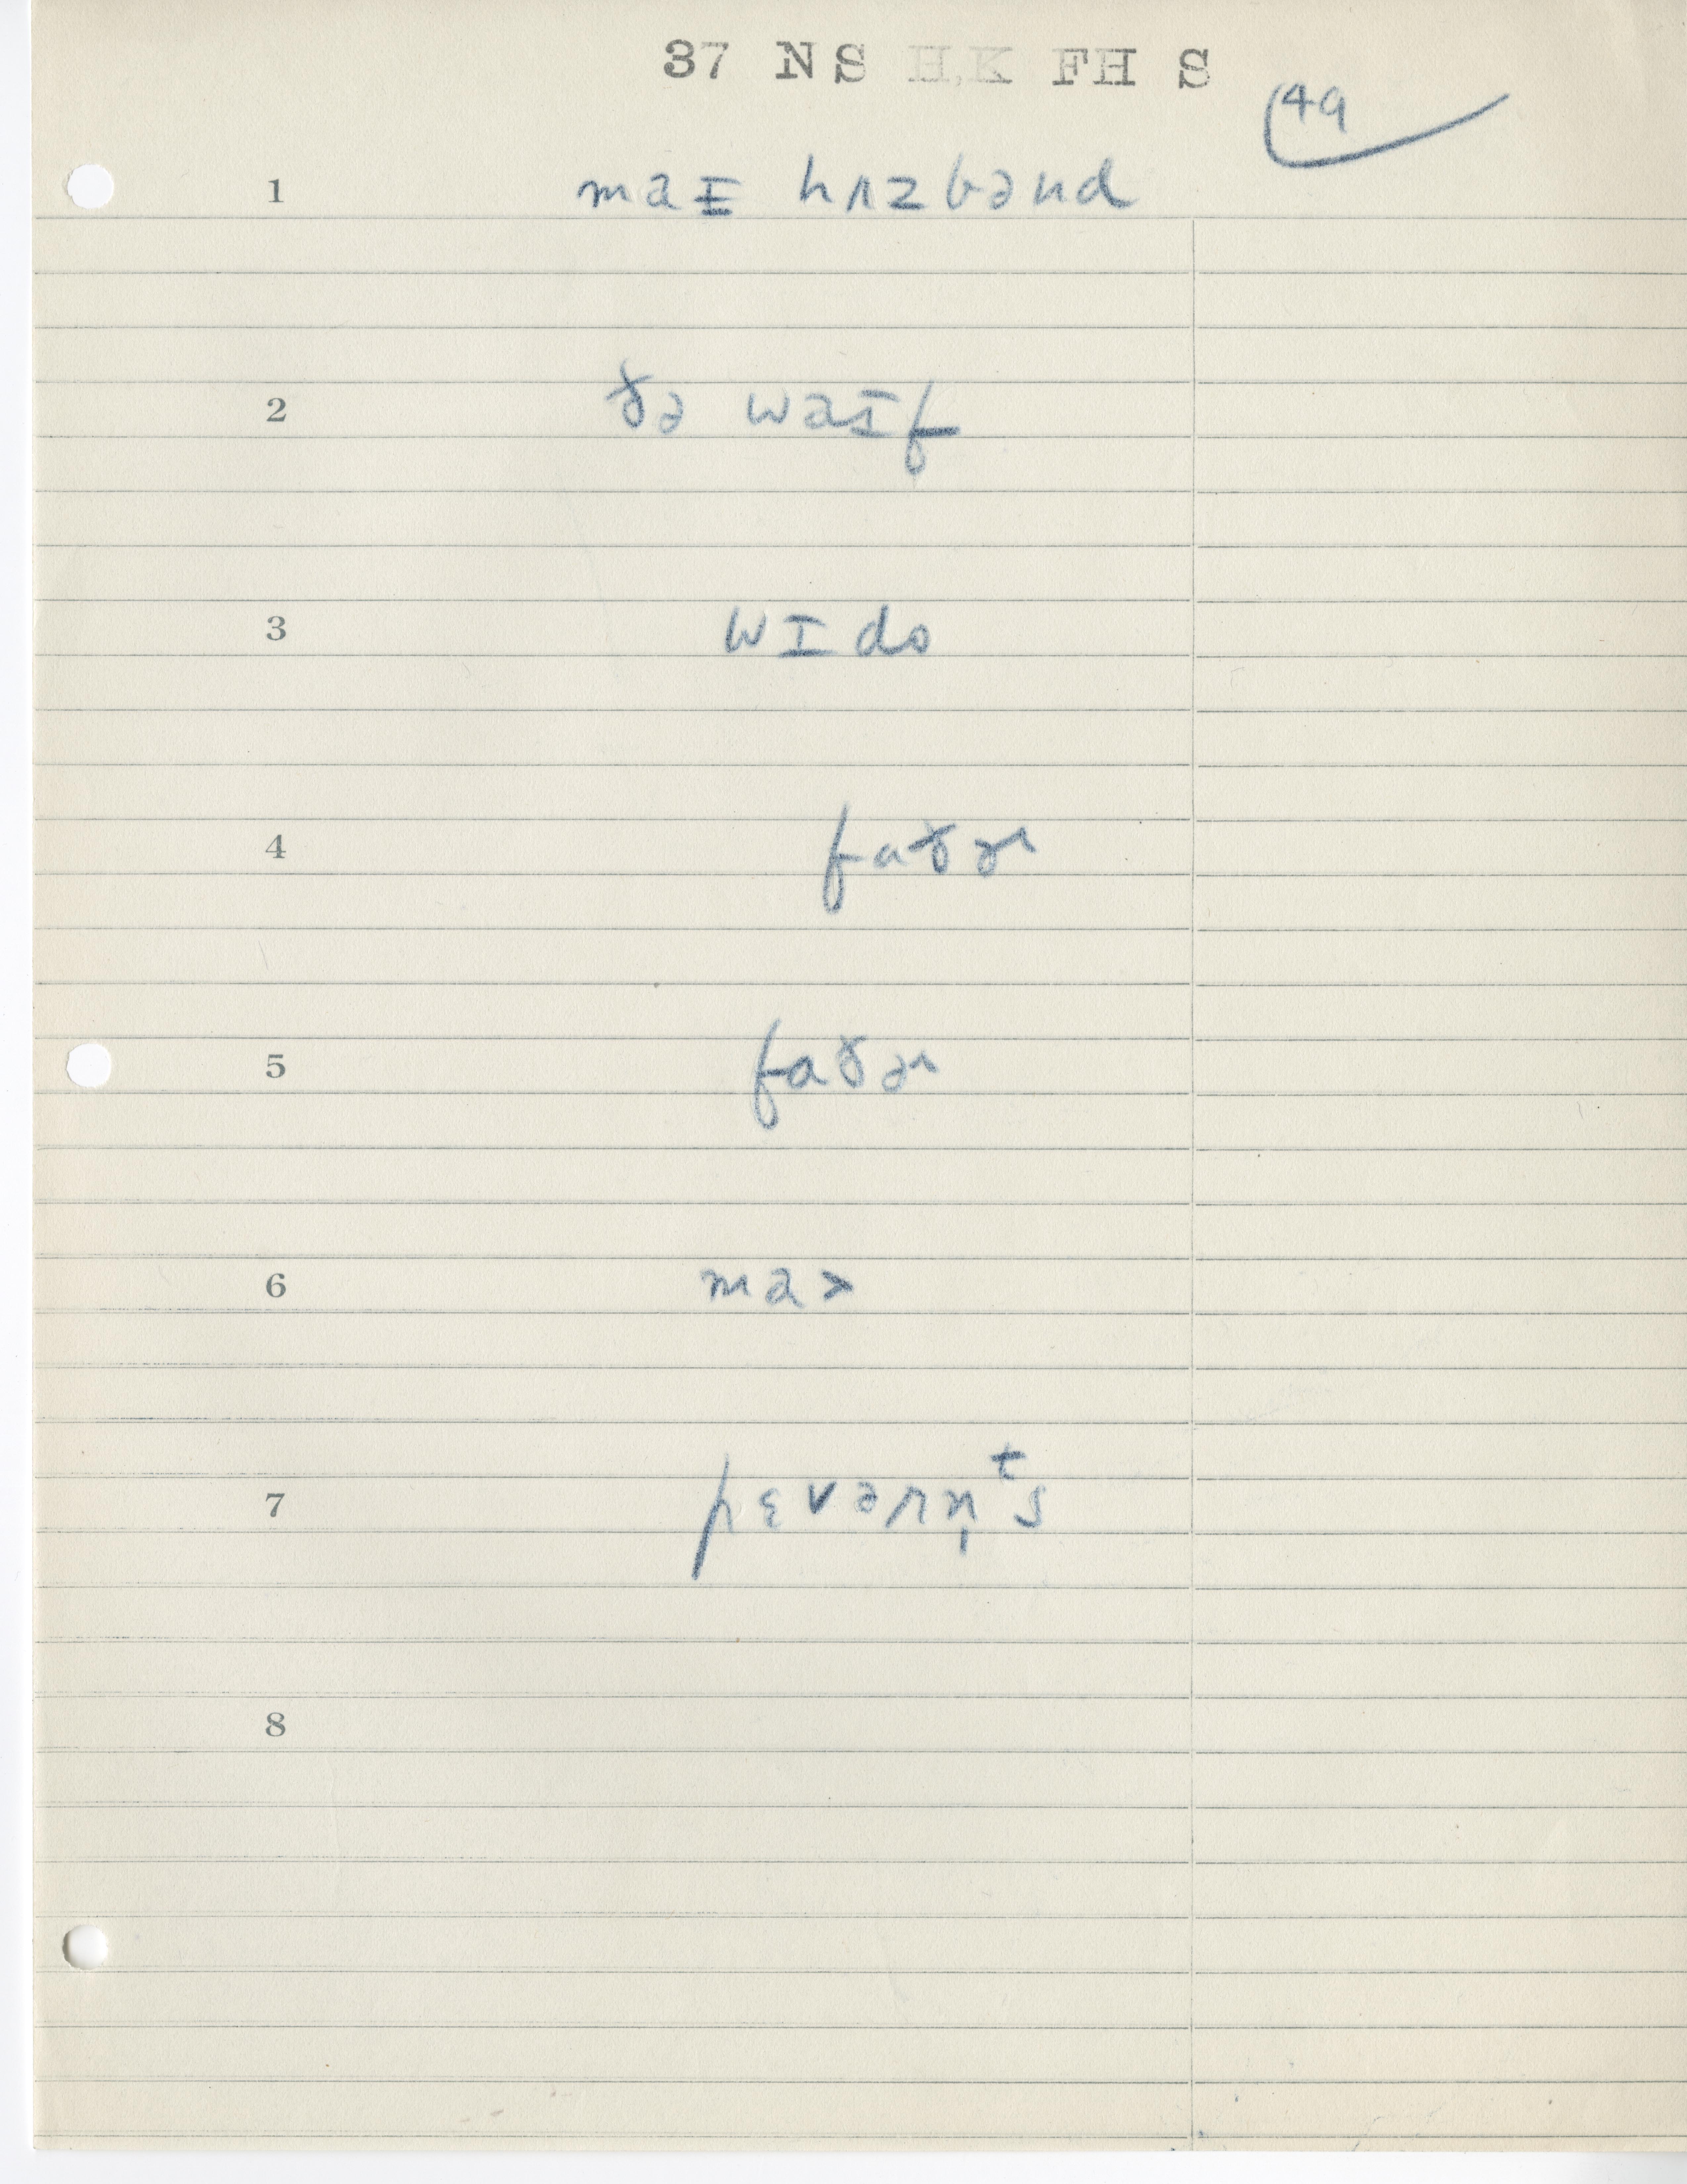 37 NS H,K FH S
49
1 maɪ hʌzbənd
2 ðə waɪf
3 wɪdo
4 faðɚ
5 faðɚ
6 ma>
7 pɛvərn̩ᵗs
8